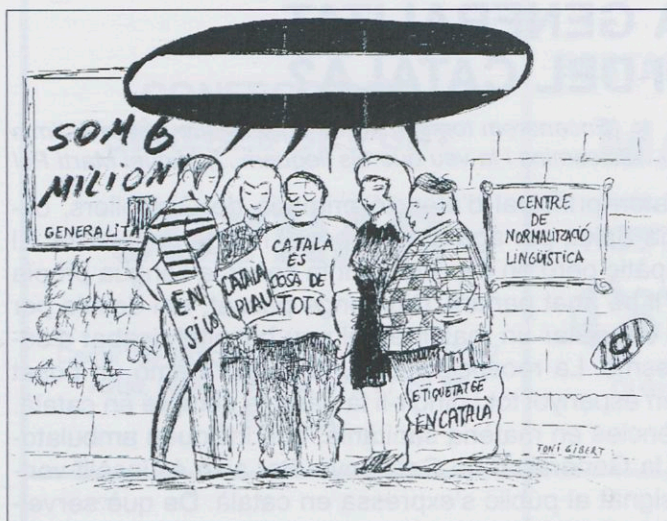 SOM 6
MILION
GENERALITA
EN
SI US
CATALÀ
PLAU
CATALÀ
ES
COSA DE
TOTS
CENTRE
DE
NORMALITZACIÓ
LINGÜÍSTICA
ETIQUETATGE
EN CATALÀ
TONI GIBERT